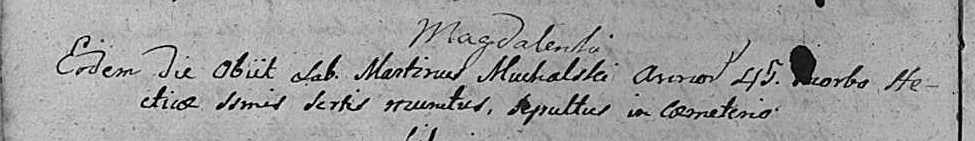 Magdalenki
Eodem die obiit Lab. Martinus Muchalski annor 45. morbo He-
cticæ ssmis sctis munitus, sepultus in cœmeterio